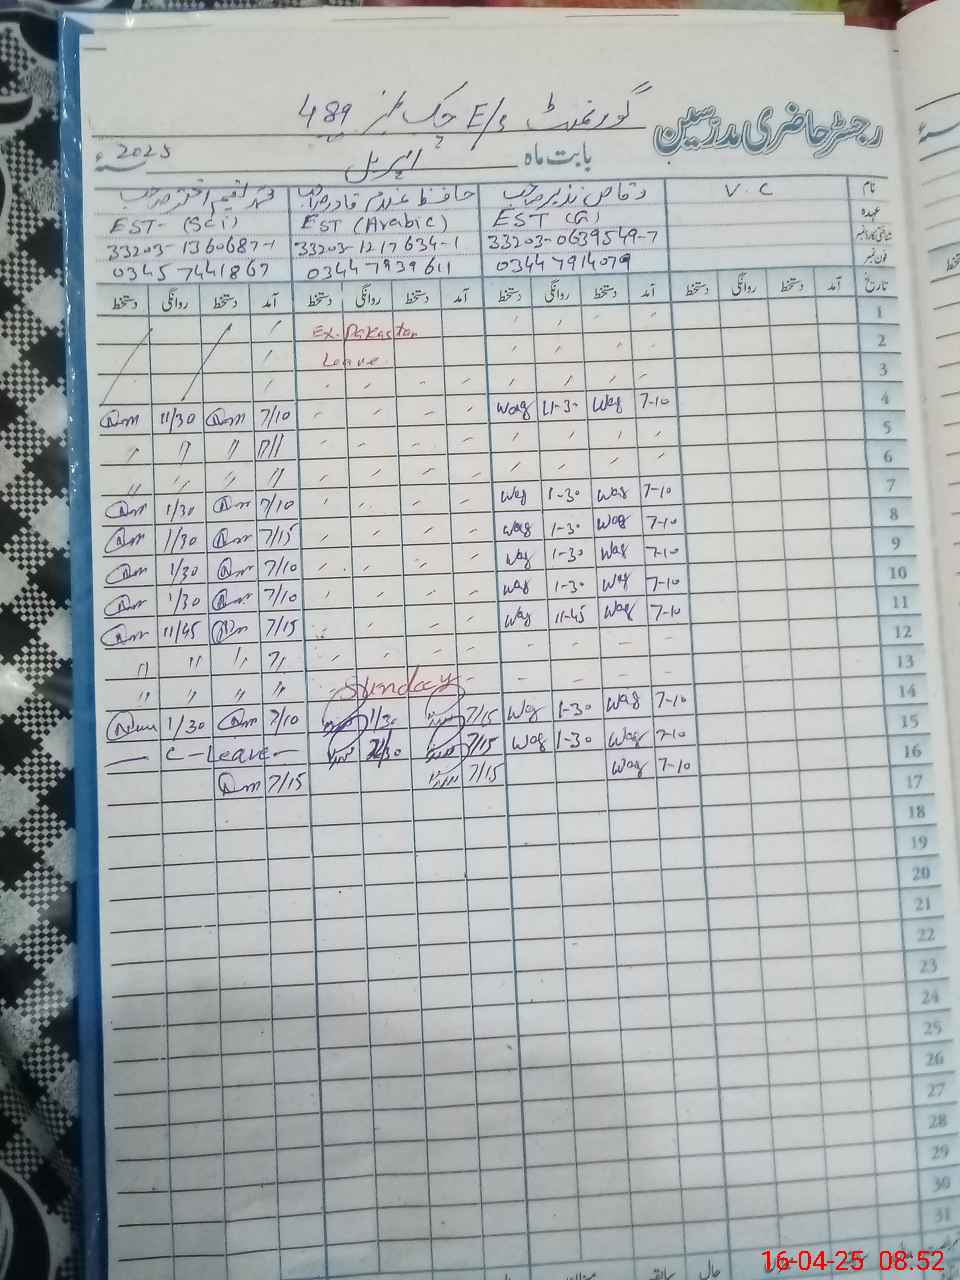 رجسٹر حاضری مدرسین گورنمنٹ E/S چک نمبر 489
بابت ماہ اپریل 2025ء
نام V.C وقاص نذیر صاحب حافظ غلام قادر صاحب
عہدہ EST (G) EST (Arabic) EST- (Sci)
شناختی کارڈ نمبر 33203-0639549-7 33203-1217634-1 33203-1360687-1
فون نمبر 03447914079 03447939611 03457441867
تاریخ آمد دستخط روانگی دستخط آمد دستخط روانگی دستخط آمد دستخط روانگی دستخط آمد دستخط روانگی دستخط
1 Ex. Pakistan
2 Leave
3
4 7-10 Waq 11-30 Waq 7/10 11/30
5 " " "
6 " " " "
7 7-10 Waq 1-30 Waq 7/10 1/30
8 7-10 Waq 1-30 Waq 7/15 1/30
9 7-10 Waq 1-30 Waq 7/10 1/30
10 7-10 Waq 1-30 Waq 7/10 1/30
11 7-10 Waq 11-45 Waq 7/15 11/45
12 " " " "
13 Sunday " " " "
14 7-10 Waq 1-30 Waq 7/15 1/30 7/10 1/30
15 7-10 Waq 1-30 Waq 7/15 C-Leave
16 7-10 Waq 7/15 7/15
17
18
19
20
21
22
23
24
25
26
27
28
29
30
31
16-04-25 08:52